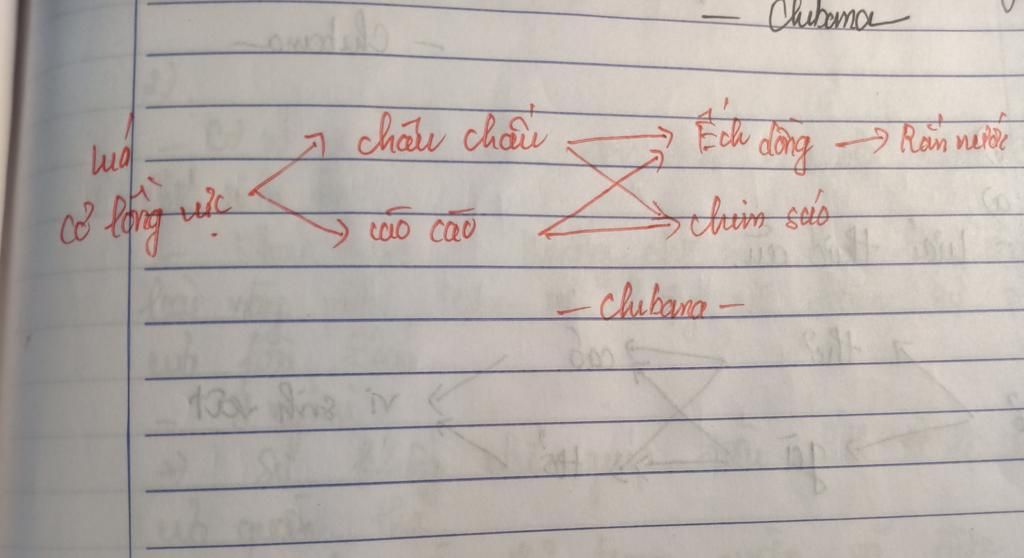 — Chibana
lúa
châu chấu
Ếch đồng → Rắn nước
cỏ lồng vực
cào cào
chim sáo
— Chibana —